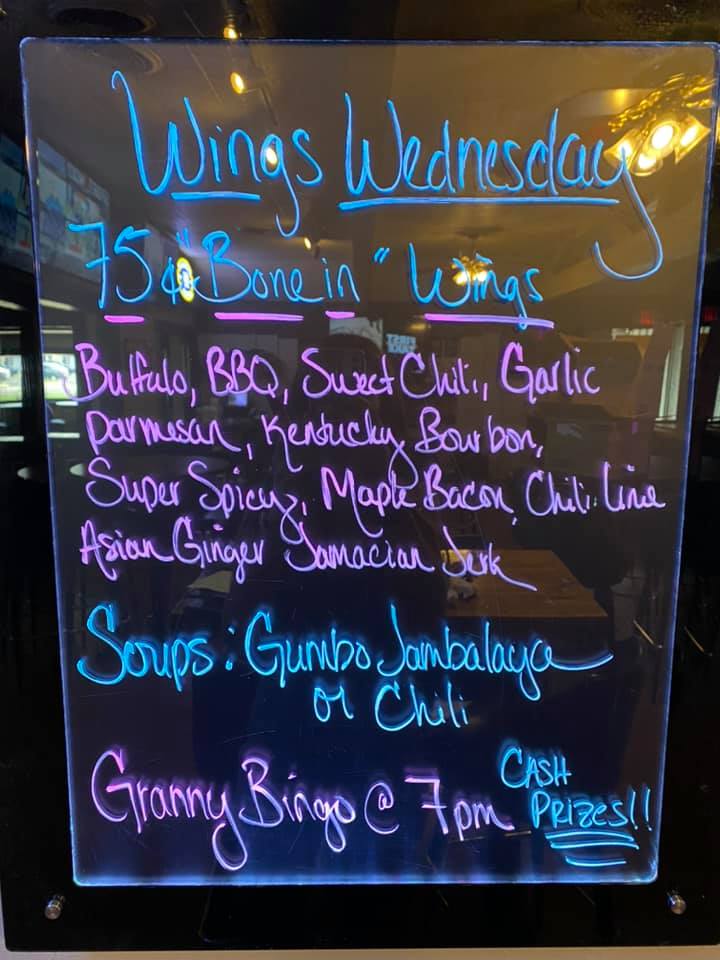 Wings Wednesday
75¢ "Bone in" Wings
Buffalo, BBQ, Sweet Chili, Garlic
parmesan, Kentucky Bourbon,
Super Spicy, Maple Bacon, Chili Lime
Asian Ginger Jamacian Jerk
Soups: Gumbo Jambalaya
or Chili
Granny Bingo @ 7pm
CASH
PRIZES!!